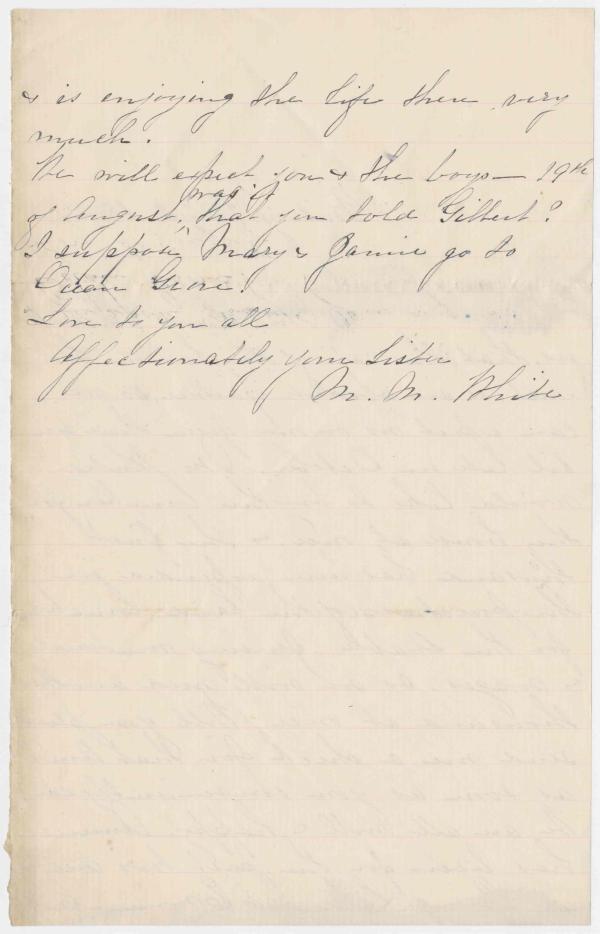 & is enjoying the life there very
much.
We will expect you & the boys — 19th
of August, was it that you told Gilbert?
I suppose Mary & Jamie go to
Ocean Grove.
Love to you all
Affectionately your sister
M. M. White